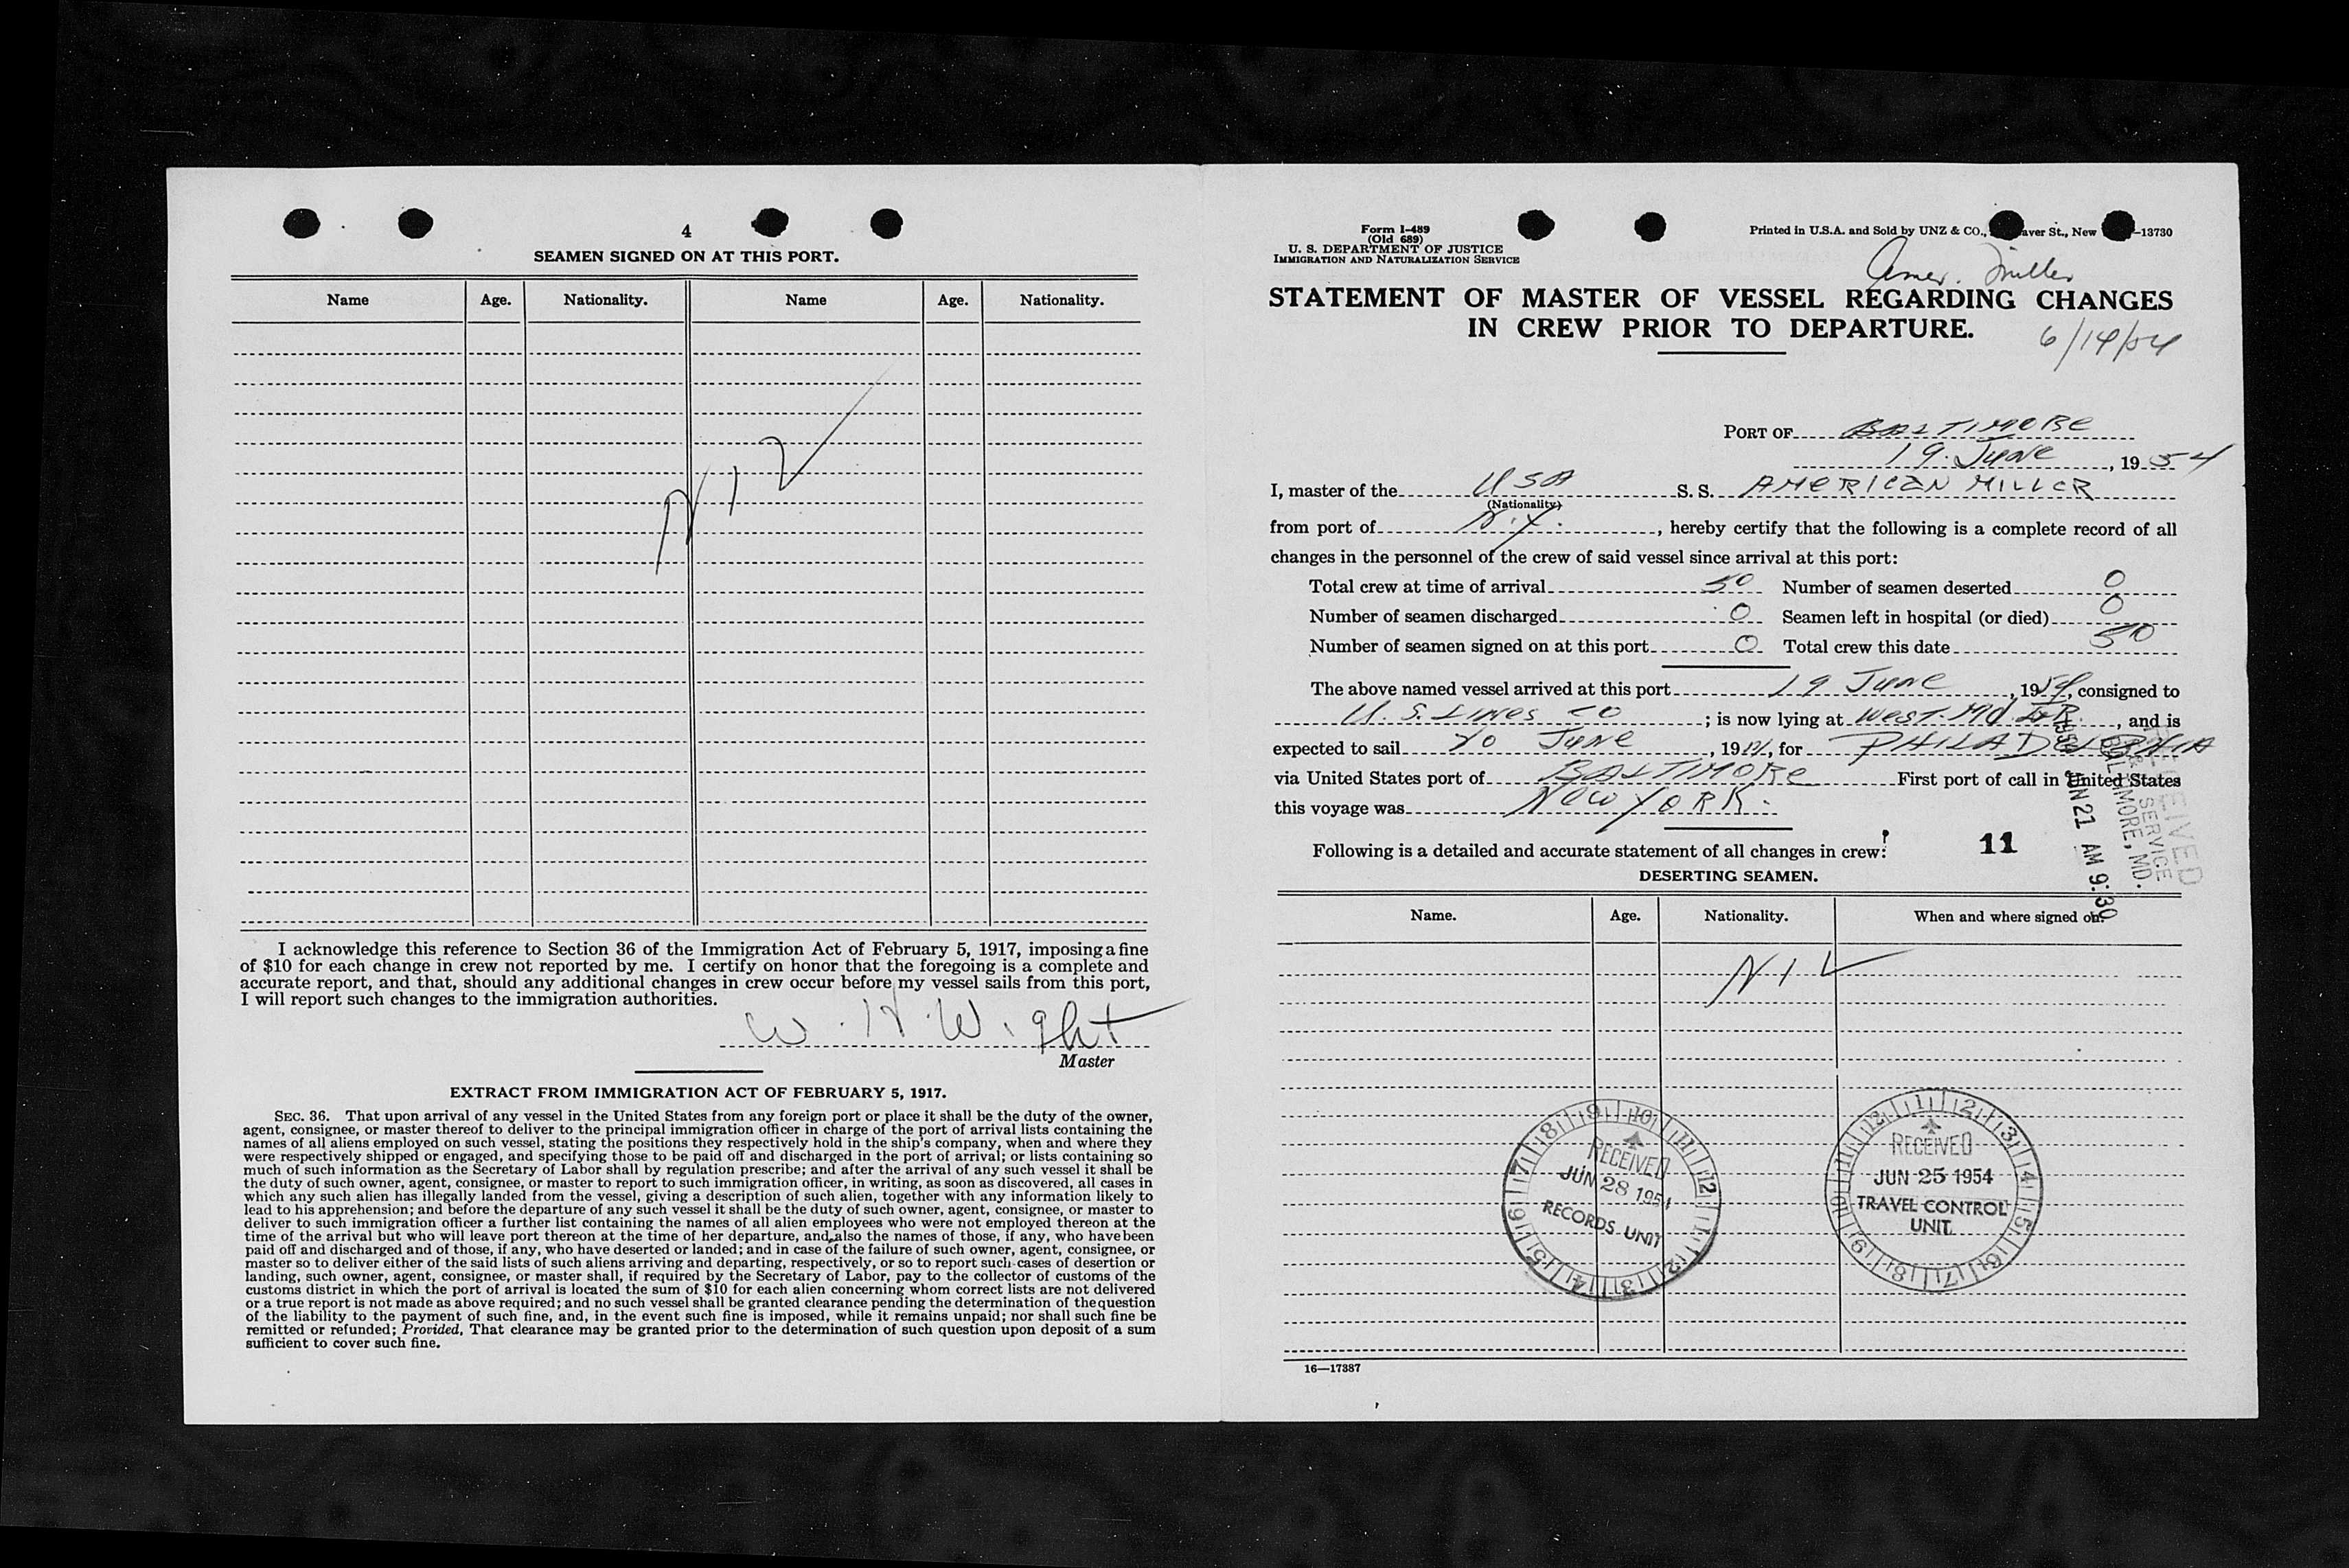 4
SEAMEN SIGNED ON AT THIS PORT.
Name Age. Nationality. Name Age. Nationality.
NIL
I acknowledge this reference to Section 36 of the Immigration Act of February 5, 1917, imposing a fine
of $10 for each change in crew not reported by me. I certify on honor that the foregoing is a complete and
accurate report, and that, should any additional changes in crew occur before my vessel sails from this port,
I will report such changes to the immigration authorities.
W. H. Wright
Master
EXTRACT FROM IMMIGRATION ACT OF FEBRUARY 5, 1917.
SEC. 36. That upon arrival of any vessel in the United States from any foreign port or place it shall be the duty of the owner,
agent, consignee, or master thereof to deliver to the principal immigration officer in charge of the port of arrival lists containing the
names of all aliens employed on such vessel, stating the positions they respectively hold in the ship's company, when and where they
were respectively shipped or engaged, and specifying those to be paid off and discharged in the port of arrival; or lists containing so
much of such information as the Secretary of Labor shall by regulation prescribe; and after the arrival of any such vessel it shall be
the duty of such owner, agent, consignee, or master to report to such immigration officer, in writing, as soon as discovered, all cases in
which any such alien has illegally landed from the vessel, giving a description of such alien, together with any information likely to
lead to his apprehension; and before the departure of any such vessel it shall be the duty of such owner, agent, consignee, or master to
deliver to such immigration officer a further list containing the names of all alien employees who were not employed thereon at the
time of the arrival but who will leave port thereon at the time of her departure, and also the names of those, if any, who have been
paid off and discharged and of those, if any, who have deserted or landed; and in case of the failure of such owner, agent, consignee, or
master so to deliver either of the said lists of such aliens arriving and departing, respectively, or so to report such cases of desertion or
landing, such owner, agent, consignee, or master shall, if required by the Secretary of Labor, pay to the collector of customs of the
customs district in which the port of arrival is located the sum of $10 for each alien concerning whom correct lists are not delivered
or a true report is not made as above required; and no such vessel shall be granted clearance pending the determination of the question
of the liability to the payment of such fine, and, in the event such fine is imposed, while it remains unpaid; nor shall such fine be
remitted or refunded; Provided, That clearance may be granted prior to the determination of such question upon deposit of a sum
sufficient to cover such fine.
Form I-489
(Old 689)
U. S. DEPARTMENT OF JUSTICE
IMMIGRATION AND NATURALIZATION SERVICE
Printed in U.S.A. and Sold by UNZ & CO., aver St., New -13730
Amer. Miller
STATEMENT OF MASTER OF VESSEL REGARDING CHANGES
IN CREW PRIOR TO DEPARTURE.
6/14/54
PORT OF BALTIMORE
19 June, 1954
I, master of the USA S. S. AMERICAN MILLER
(Nationality)
from port of N.Y., hereby certify that the following is a complete record of all
changes in the personnel of the crew of said vessel since arrival at this port:
Total crew at time of arrival 50 Number of seamen deserted 0
Number of seamen discharged 0 Seamen left in hospital (or died) 0
Number of seamen signed on at this port 0 Total crew this date 50
The above named vessel arrived at this port 19 June, 1954, consigned to
U. S. LINES CO; is now lying at West. Md., and is
expected to sail 20 June, 19, for PHILADELPHIA
via United States port of BALTIMORE First port of call in United States
this voyage was New YORK.
Following is a detailed and accurate statement of all changes in crew: 11
RECEIVED
SERVICE
BALTIMORE, MD.
1954 JUN 21 AM 9:30
DESERTING SEAMEN.
Name. Age. Nationality. When and where signed on.
NIL
9 10 11 12 1 2 3 4 5 6 7 8
RECEIVED
JUN 28 1954
RECORDS UNIT
12 1 2 3 4 5 6 7 8 9 10 11
RECEIVED
JUN 25 1954
TRAVEL CONTROL
UNIT.
16—17387